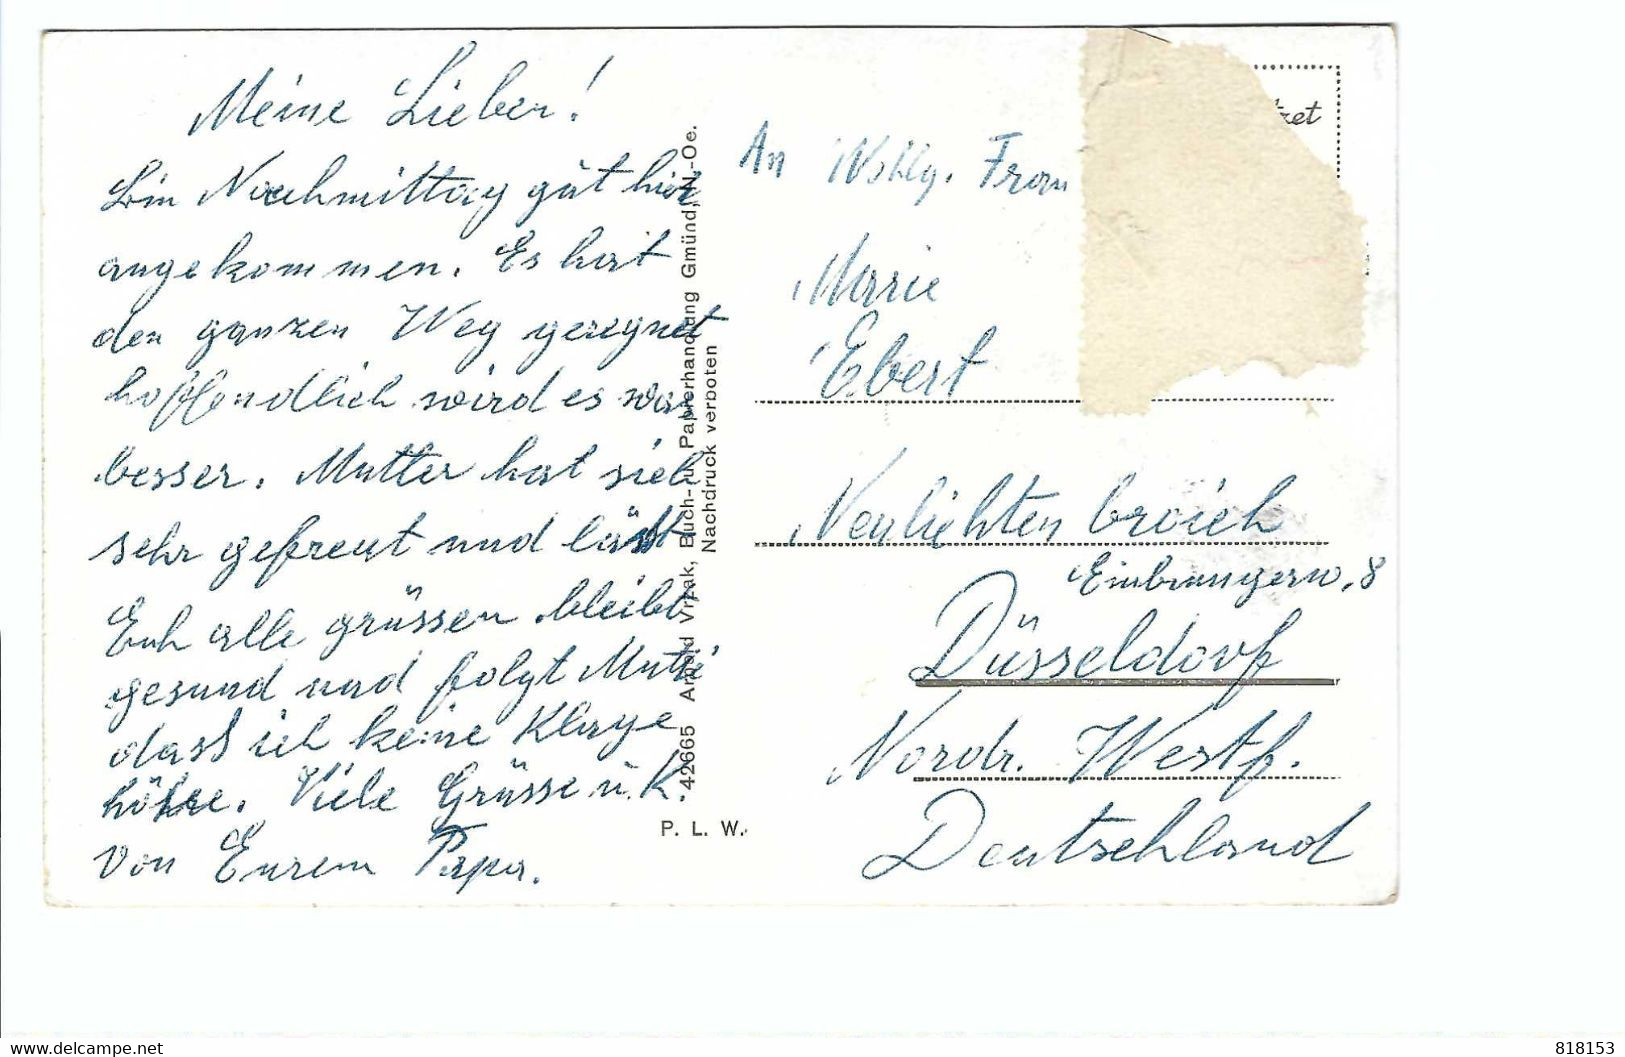 Meine Lieben!
Bin Nachmittag gut hier
angekommen. Es hat
den ganzen Weg geregnet
hoffendlich wird es was
besser. Mutter hat sich
sehr gefreut und lässt
Euch alle grüssen bleibt
gesund und folgt Mutti
dass ich keine Klage
höre. Viele Grüsse u. K.
von Eurem Papa.
42665 Arnold Vrzak, Buch- u. Papierhandlung Gmünd, N.-Oe.
Nachdruck verboten
P. L. W.
An Wohlg. Frau
Marie
Ebert
Neulichtenbroich
8
Düsseldorf
Nordr. Westf.
Deutschland
www.delcampe.net The Collector's Marketplace
818153